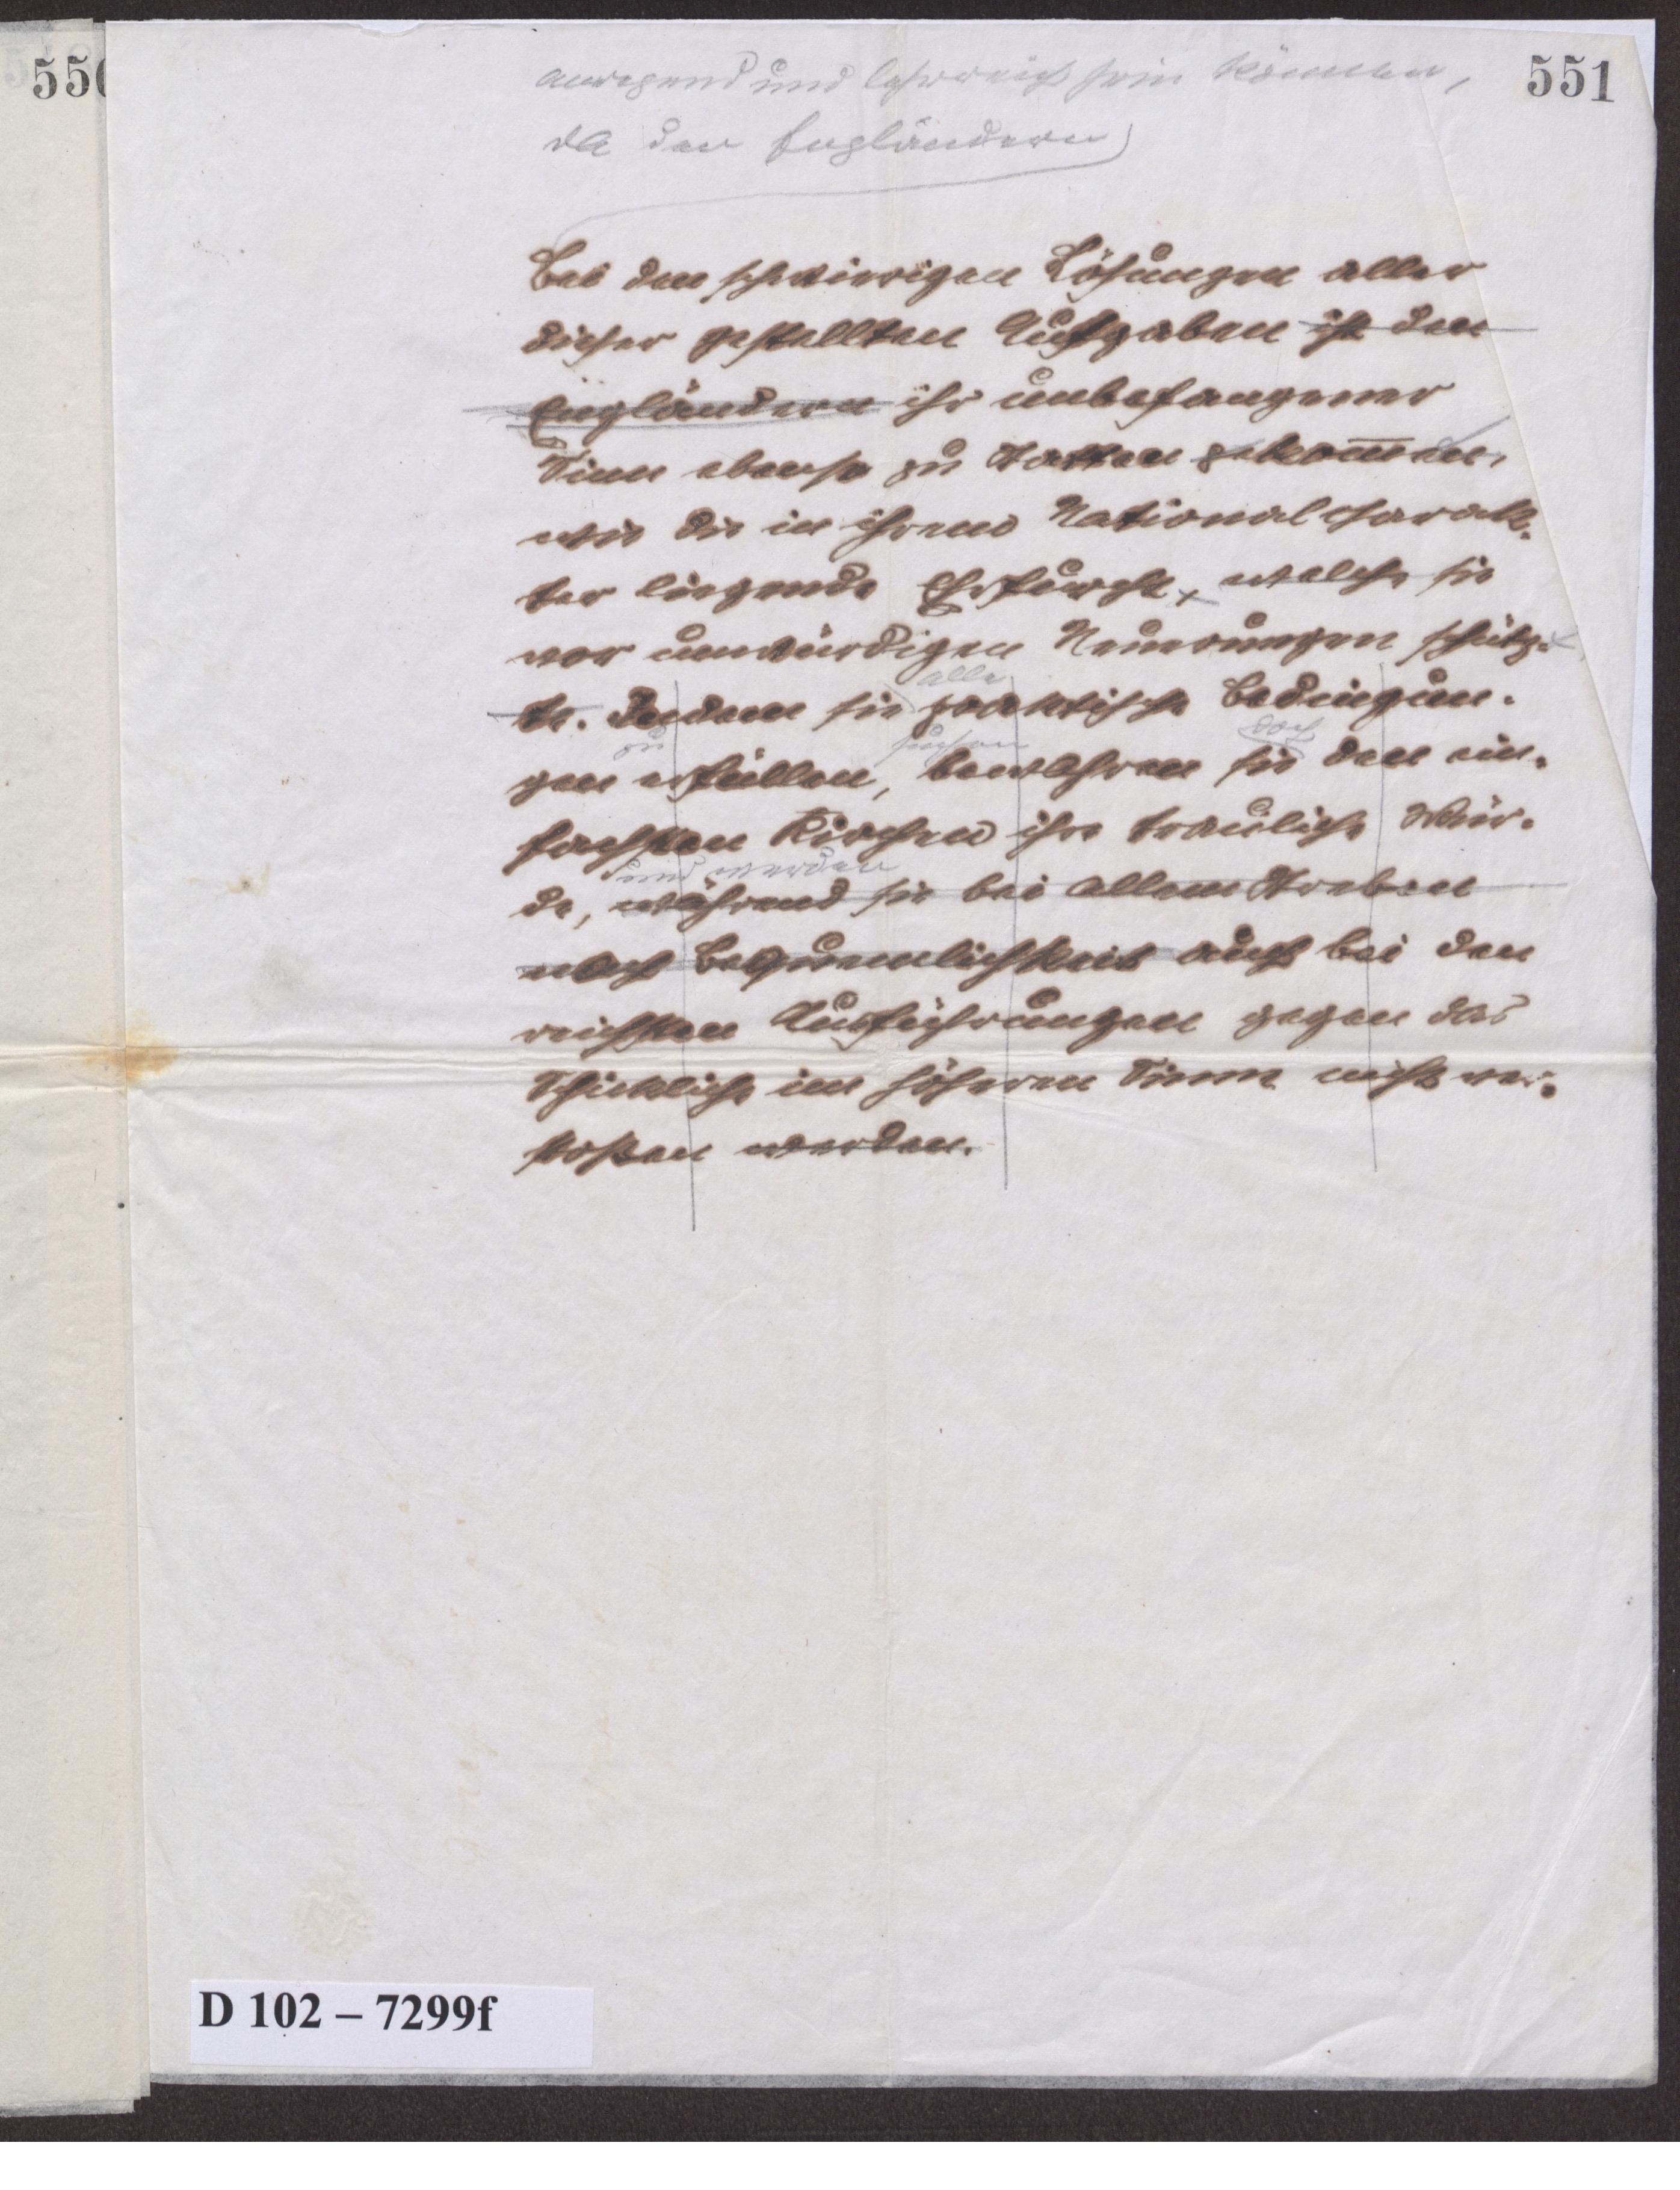 550
551
anregend und lehrreich sein können,
da den Engländern
Bei den schwierigen Lösungen aller
dieser gestellten Aufgaben ist den
Engländern ihr unbefangener
Sinn ebenso zu statten gekommen,
wie die in ihrem Nationalcharak-
ter liegende Ehrfurcht, welche sie
vor unwürdigen Neuerungen schütz-
alle
te. Indem sie praktische Bedingun-
zu suchen doch
gen erfüllen, bewahren sie den ein-
fachsten Kirchen ihre trauliche Wür-
und werden
de, während sie bei allem Streben
nach Bequemlichkeit auch bei den
reichsten Ausführungen gegen das
Schickliche im höheren Sinne nicht ver-
stoßen werden.
D 102 – 7299f